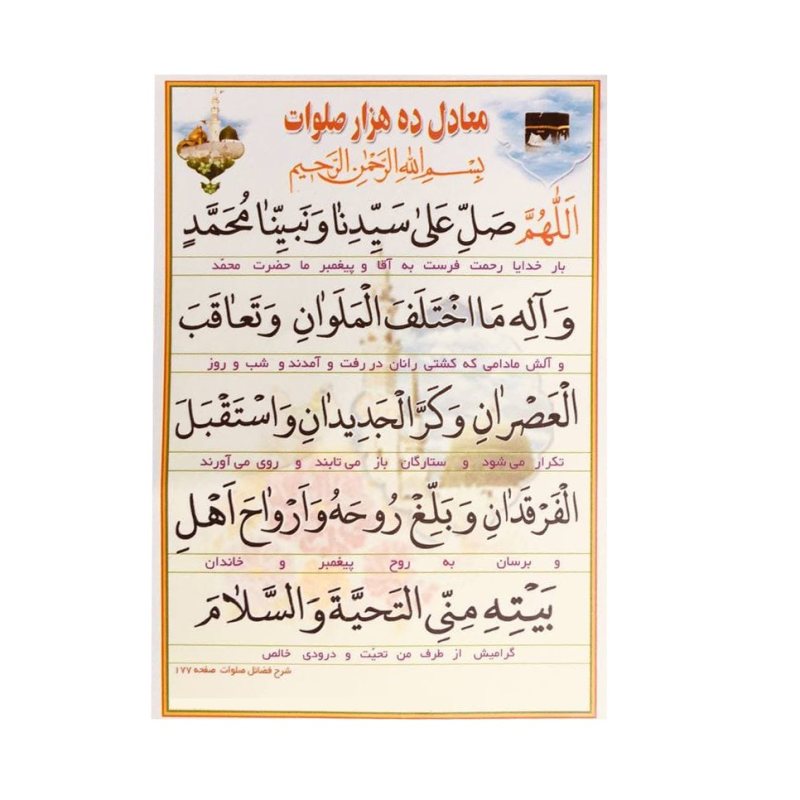 معادل ده هزار صلوات
بِسْمِ اللهِ الرَّحْمٰنِ الرَّحیمِ
اَللّٰهُمَّ صَلِّ عَلىٰ سَيِّدِنٰا وَ نَبيِّنٰا مُحَمَّدٍ
بار خدایا رحمت فرست به آقا و پیغمبر ما حضرت محمّد
وَ آلِهِ مَا اخْتَلَفَ الْمَلَوٰانِ وَ تَعٰاقَبَ
و آلش مادامی که کشتی رانان در رفت و آمدند و شب و روز
الْعَصْرٰانِ وَ كَرَّ الْجَديدٰانِ وَ اسْتَقْبَلَ
تکرار می شود و ستارگان باز می تابند و روی می آورند
الْفَرْقَدٰانِ وَ بَلِّغْ رُوحَهُ وَ اَرْوٰاحَ اَهْلِ
و برسان به روح پیغمبر و خاندان
بَيْتِهِ مِنِّي التَّحيَّةَ وَ السَّلٰامَ
گرامیش از طرف من تحیّت و درودی خالص
شرح فضائل صلوات صفحه ۱۷۷